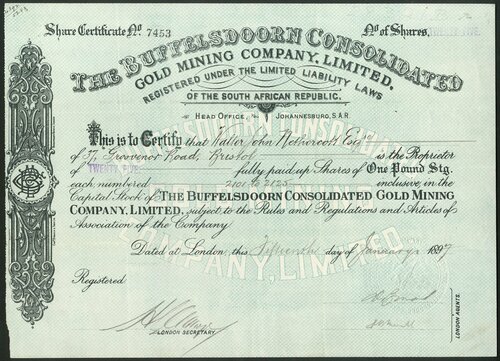 Share Certificate No 7453
No of Shares, TWENTY FIVE.
THE BUFFELSDOORN CONSOLIDATED
GOLD MINING COMPANY, LIMITED.
REGISTERED UNDER THE LIMITED LIABILITY LAWS
OF THE SOUTH AFRICAN REPUBLIC.
HEAD OFFICE, JOHANNESBURG, S.A.R.
This is to Certify that Walter John Esq
of Grosvenor Road, Bristol is the Proprietor
of TWENTY FIVE fully paid up Shares of One Pound Stg.
each, numbered 2101 to 2125 inclusive in the
Capital Stock of THE BUFFELSDOORN CONSOLIDATED GOLD MINING
COMPANY, LIMITED, subject to the Rules and Regulations and Articles of
Association of the Company
Dated at London, this Fifteenth day of January 1897
Registered
LONDON SECRETARY.
LONDON AGENTS.